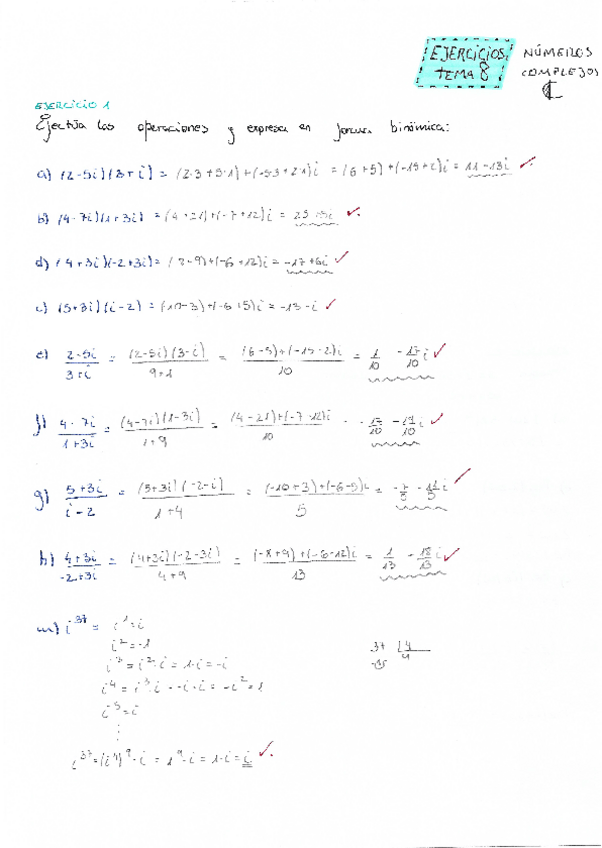 EJERCICIOS NÚMEROS
TEMA 8 COMPLEJOS
ℂ
EJERCICIO 1
Efectúa las operaciones y expresa en forma binómica:
a) (2-5i)(3+i) = (2·3+5·1)+(-5·3+2·1)i = (6+5)+(-15+2)i = 11-13i ✓
b) (4-7i)(1+3i) = (4+21)+(-7+12)i = 25+5i ✓
d) (4+3i)(-2+3i) = (-8-9)+(-6+12)i = -17+6i ✓
c) (5+3i)(i-2) = (-10-3)+(-6+5)i = -13-i ✓
e) 2-5i / 3+i = (2-5i)(3-i) / 9+1 = (6-5)+(-15-2)i / 10 = 1/10 -17/10 i ✓
f) 4-7i / 1+3i = (4-7i)(1-3i) / 1+9 = (4-21)+(-7-12)i / 10 = -17/10 -19/10 i ✓
g) 5+3i / i-2 = (5+3i)(-2-i) / 1+4 = (-10+3)+(-6-5)i / 5 = -7/5 -11/5 i ✓
h) 4+3i / -2+3i = (4+3i)(-2-3i) / 4+9 = (-8+9)+(-6-12)i / 13 = 1/13 -18/13 i ✓
m) i^37 = i^1 = i
i^2 = -1
i^3 = i^2·i = -1·i = -i
37 | 4
i^4 = i^3·i = -i·i = -i^2 = 1
i^5 = i
⋮
i^37 = (i^4)^9·i = 1^9·i = 1·i = i ✓